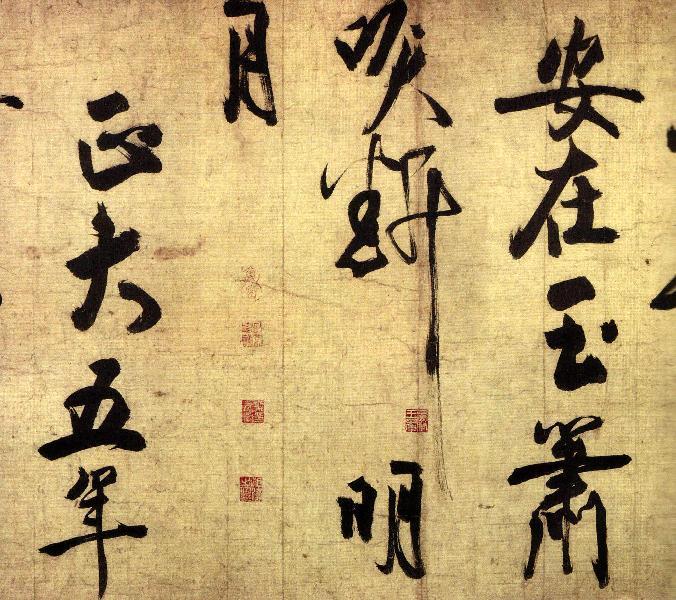 安在玉簫
喚斷明
月
正大五年